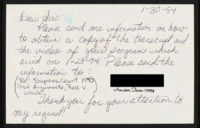 1-30-94
Dear Sirs:
Please send me information on how
to obtain a copy of the transcript and
the video of your program which
aired on 1-29-94. Please send the
information to:
Houston, Texas
Thank you for your attention to
my request!